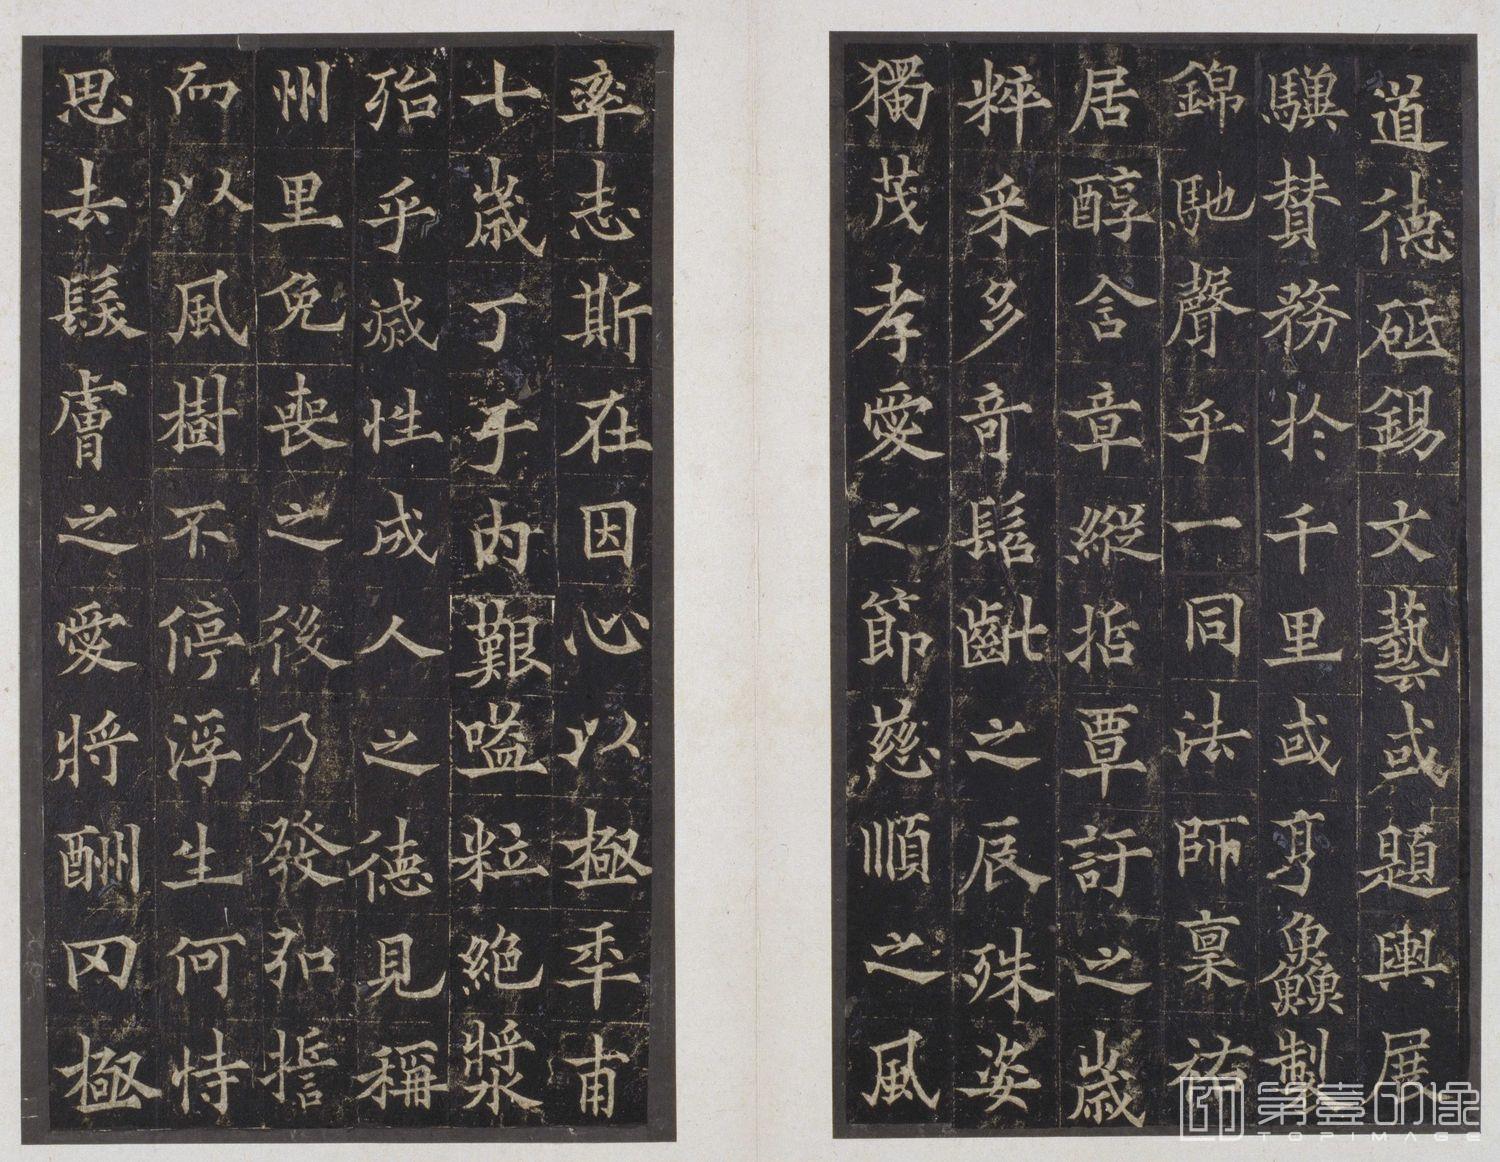 道德砥錫文藝或題輿展
驥贊務於千里或亨鱻製
錦馳聲乎一同法師稟祐
居醇含章縱哲覃訏之歲
粹采多奇髫齔之辰殊姿
獨茂孝愛之節慈順之風
率志斯在因心以極年甫
七歲丁于內艱嗌粒絕漿
殆乎滅性成人之德見稱
州里免喪之後乃發弘誓
而以風樹不停浮生何恃
思去髮膚之愛將酬罔極
第壹印象
TOPIMAGE